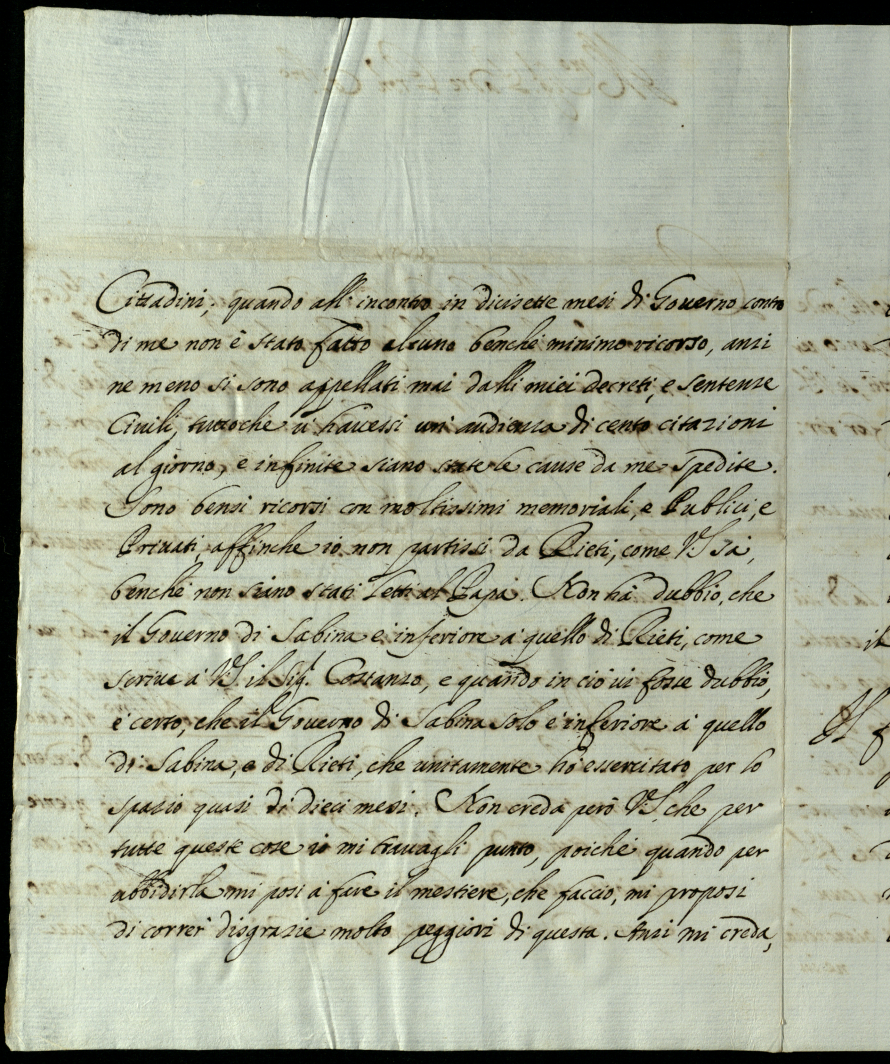 Cittadini; quando all'incontro in dicisette mesi di Governo contro
di me non è stato fatto alcuno benche minimo ricorso, anzi
ne meno si sono appellati mai dalli miei decreti, e sentenze
Civili, tuttoche vi havessi un'audienza di cento citazioni
al giorno, e infinite siano state le cause da me spedite.
Sono bensi ricorsi con moltissimi memoriali, e Publici, e
Privati affinche io non partissi da Rieti, come VS sà,
benche non siano stati letti al Papa. Non hà dubbio, che
il Governo di Sabina è inferiore à quello di Rieti, come
scrive à VS il Sig.r Costanzo, e quando in ciò vi fosse dubbio,
è certo, che il Governo di Sabina solo è inferiore à quello
di Sabina, e di Rieti, che unitamente hò essercitato per lo
spazio quasi di dieci mesi. Non creda però VS, che per
tutte queste cose io mi travagli punto, poiche quando per
ubbidirla mi posi à fare il mestiere, che faccio, mi proposi
di correr disgrazie molto peggiori di questa. Anzi mi creda,